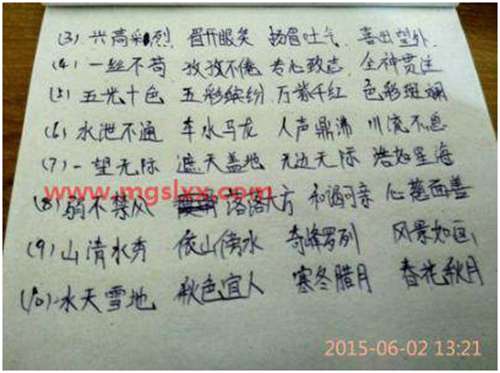 (3) 兴高彩烈 眉开眼笑 扬眉吐气 喜出望外
(4) 一丝不苟 孜孜不倦 专心致志 全神贯注
(5) 五光十色 五彩缤纷 万紫千红 色彩斑斓
(6) 水泄不通 车水马龙 人声鼎沸 川流不息
(7) 一望无际 遮天盖地 无边无际 浩如星海
www.mgslxx.com
(8) 弱不禁风 落落大方 和谒可亲 心慈面善
(9) 山清水秀 依山傍水 奇峰罗列 风景如画
(10) 水天雪地 秋色宜人 寒冬腊月 春花秋月
2015-06-02 13:21